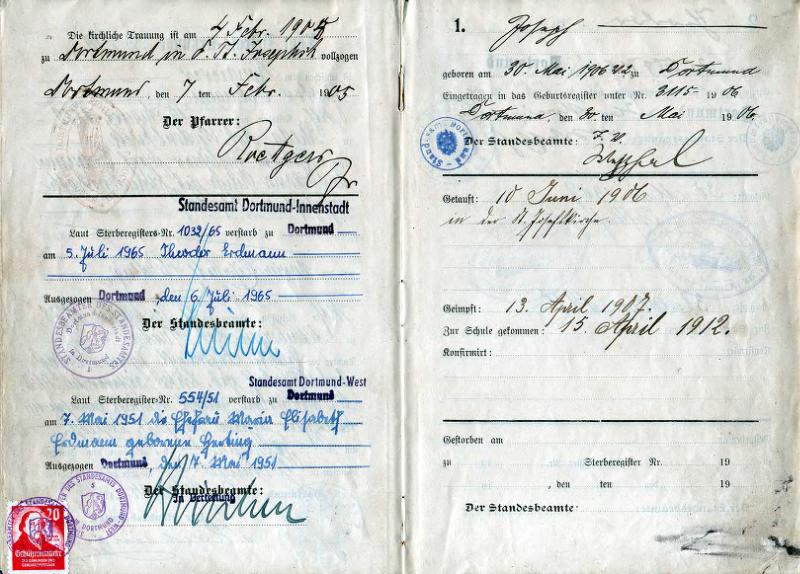 Die kirchliche Trauung ist am 4 Febr. 1905
zu Dortmund in d. St. Josephsk vollzogen
Dortmund, den 7 ten Febr. 1905
Der Pfarrer:
Roettgers
Pfr
Standesamt Dortmund-Innenstadt
Laut Sterberegisters-Nr. 1032/65 verstarb zu Dortmund
am 5. Juli 1965 Theodor Erdmann
Ausgezogen Dortmund, den 6. Juli 1965
Der Standesbeamte:
Standesamt Dortmund-West
Laut Sterberegister-Nr. 554/51 verstarb zu Dortmund
am 7. Mai 1951 die Ehefrau Maria Elisabeth
Erdmann geborene Herting
Ausgezogen Dortmund, den 7. Mai 1951
Der Standesbeamte:
In Vertretung
DORTMUND
20
Gebührenmarke
1. Joseph
geboren am 30. Mai 1906 zu Dortmund
Eingetragen in das Geburtsregister unter Nr. 3115 - 1906
Dortmund, den 30. ten Mai 1906.
Der Standesbeamte:
Getauft: 10 Juni 1906
in der St. Josephskirche.
Geimpft: 13. April 1907.
Zur Schule gekommen: 15. April 1912.
Konfirmirt:
Gestorben am
zu Sterberegister Nr. 19
, den ten 19
Der Standesbeamte: